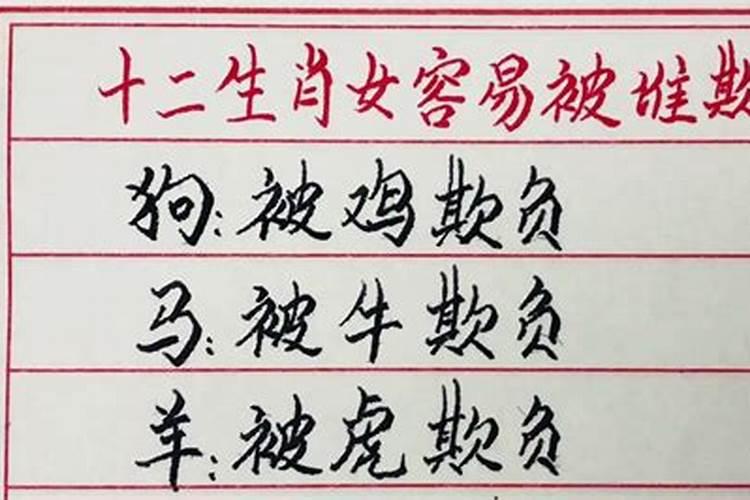 十二生肖女容易被谁欺
狗:被鸡欺负
马:被牛欺负
羊:被虎欺负